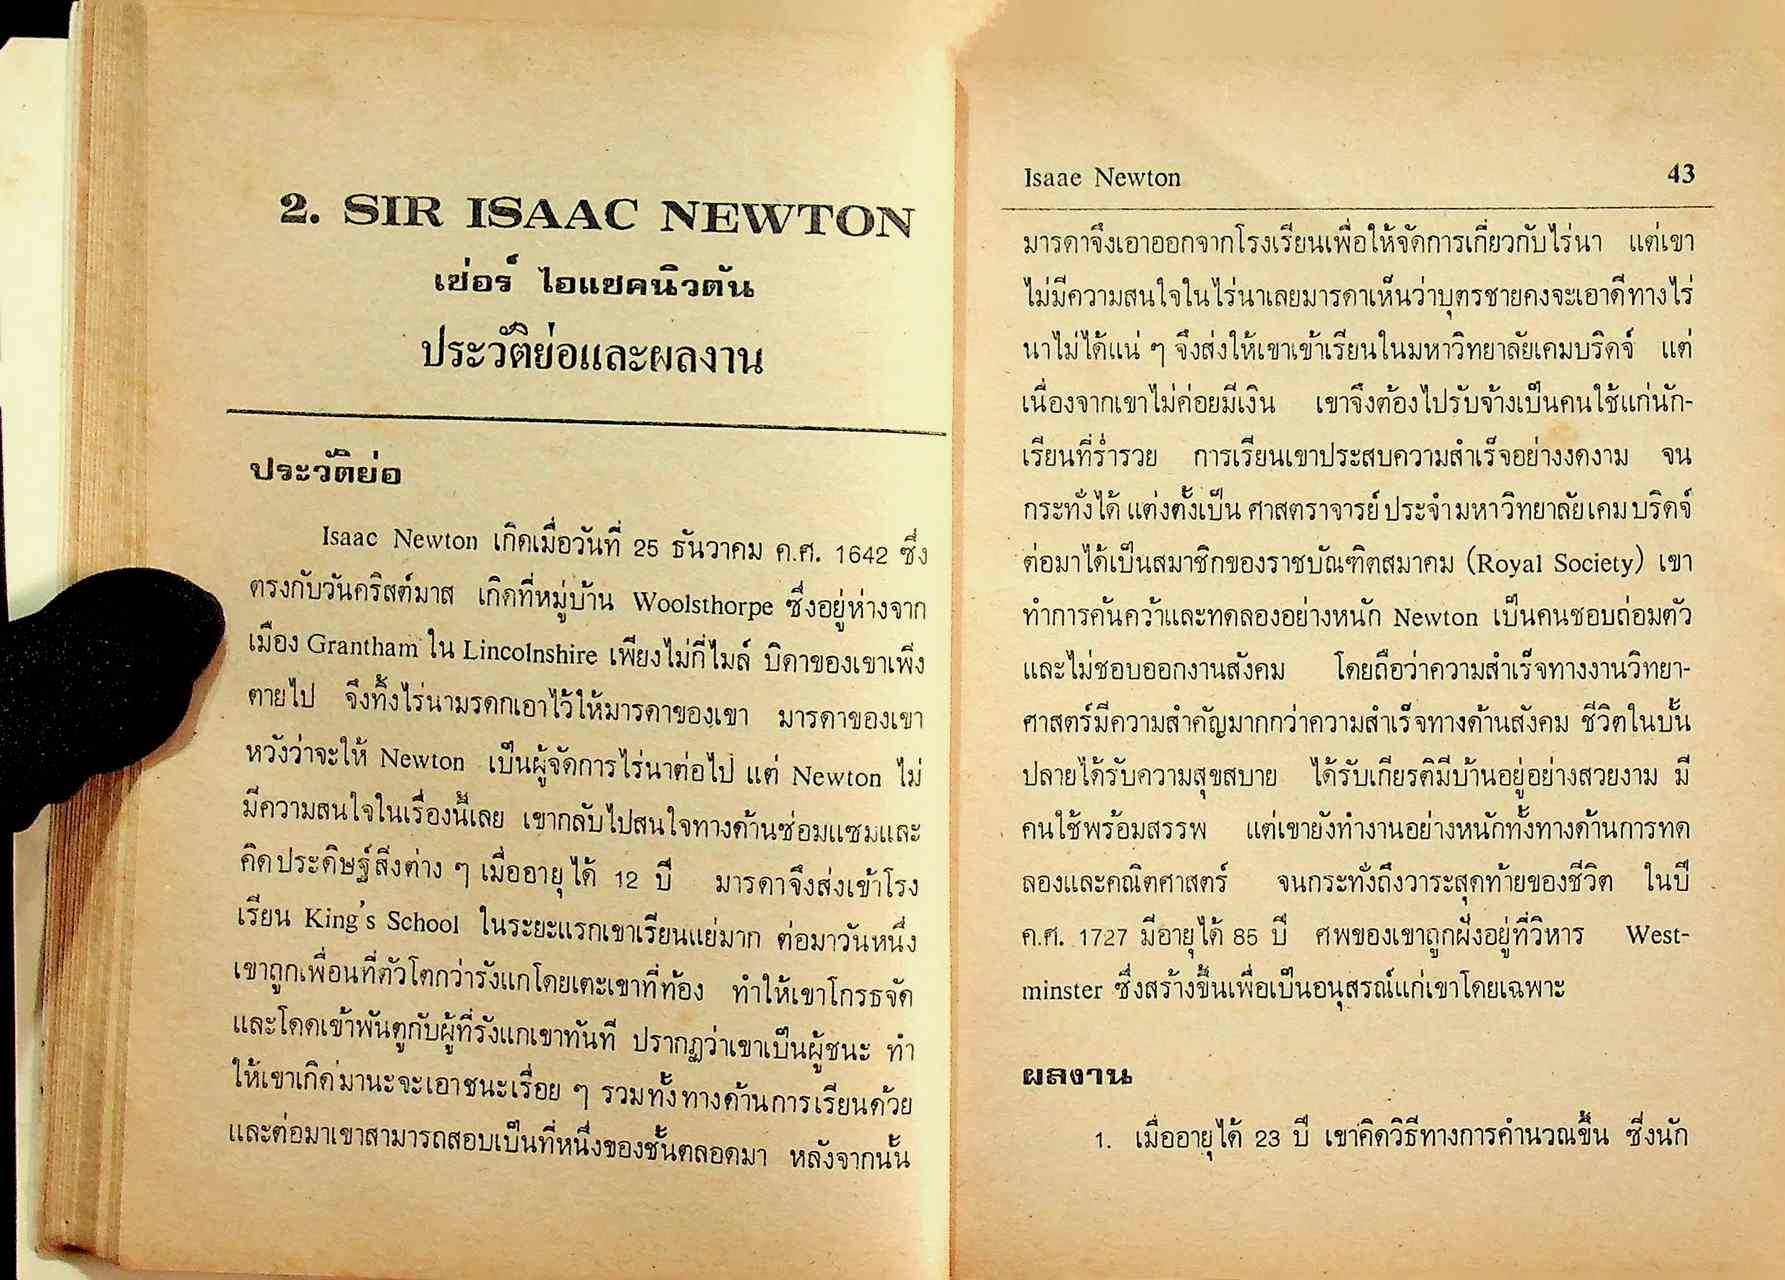 2. SIR ISAAC NEWTON
เซ่อร์ ไอแซคนิวตัน
ประวัติย่อและผลงาน
ประวัติย่อ
Isaac Newton เกิดเมื่อวันที่ 25 ธันวาคม ค.ศ. 1642 ซึ่ง
ตรงกับวันคริสต์มาส เกิดที่หมู่บ้าน Woolsthorpe ซึ่งอยู่ห่างจาก
เมือง Grantham ใน Lincolnshire เพียงไม่กี่ไมล์ บิดาของเขาเพิ่ง
ตายไป จึงทิ้งไร่นามรดกเอาไว้ให้มารดาของเขา มารดาของเขา
หวังว่าจะให้ Newton เป็นผู้จัดการไร่นาต่อไป แต่ Newton ไม่
มีความสนใจในเรื่องนี้เลย เขากลับไปสนใจทางด้านซ่อมแซมและ
คิดประดิษฐ์สิ่งต่าง ๆ เมื่ออายุได้ 12 ปี มารดาจึงส่งเข้าโรง
เรียน King's School ในระยะแรกเขาเรียนแย่มาก ต่อมาวันหนึ่ง
เขาถูกเพื่อนที่ตัวโตกว่ารังแกโดยเตะเขาที่ท้อง ทำให้เขาโกรธจัด
และโดดเข้าพันตูกับผู้ที่รังแกเขาทันที ปรากฏว่าเขาเป็นผู้ชนะ ทำ
ให้เขาเกิดมานะจะเอาชนะเรื่อย ๆ รวมทั้งทางด้านการเรียนด้วย
และต่อมาเขาสามารถสอบเป็นที่หนึ่งของชั้นตลอดมา หลังจากนั้น
Isaae Newton 43
มารดาจึงเอาออกจากโรงเรียนเพื่อให้จัดการเกี่ยวกับไร่นา แต่เขา
ไม่มีความสนใจในไร่นาเลยมารดาเห็นว่าบุตรชายคงจะเอาดีทางไร่
นาไม่ได้แน่ ๆ จึงส่งให้เขาเข้าเรียนในมหาวิทยาลัยเคมบริดจ์ แต่
เนื่องจากเขาไม่ค่อยมีเงิน เขาจึงต้องไปรับจ้างเป็นคนใช้แก่นัก-
เรียนที่ร่ำรวย การเรียนเขาประสบความสำเร็จอย่างงดงาม จน
กระทั่งได้ แต่งตั้งเป็น ศาสตราจารย์ ประจำมหาวิทยาลัยเคมบริดจ์
ต่อมาได้เป็นสมาชิกของราชบัณฑิตสมาคม (Royal Society) เขา
ทำการค้นคว้าและทดลองอย่างหนัก Newton เป็นคนชอบถ่อมตัว
และไม่ชอบออกงานสังคม โดยถือว่าความสำเร็จทางงานวิทยา-
ศาสตร์มีความสำคัญมากกว่าความสำเร็จทางด้านสังคม ชีวิตในบั้น
ปลายได้รับความสุขสบาย ได้รับเกียรติมีบ้านอยู่อย่างสวยงาม มี
คนใช้พร้อมสรรพ แต่เขายังทำงานอย่างหนักทั้งทางด้านการทด
ลองและคณิตศาสตร์ จนกระทั่งถึงวาระสุดท้ายของชีวิต ในปี
ค.ศ. 1727 มีอายุได้ 85 ปี ศพของเขาถูกฝังอยู่ที่วิหาร West-
minster ซึ่งสร้างขึ้นเพื่อเป็นอนุสรณ์แก่เขาโดยเฉพาะ
ผลงาน
1. เมื่ออายุได้ 23 ปี เขาคิดวิธีทางการคำนวณขึ้น ซึ่งนัก